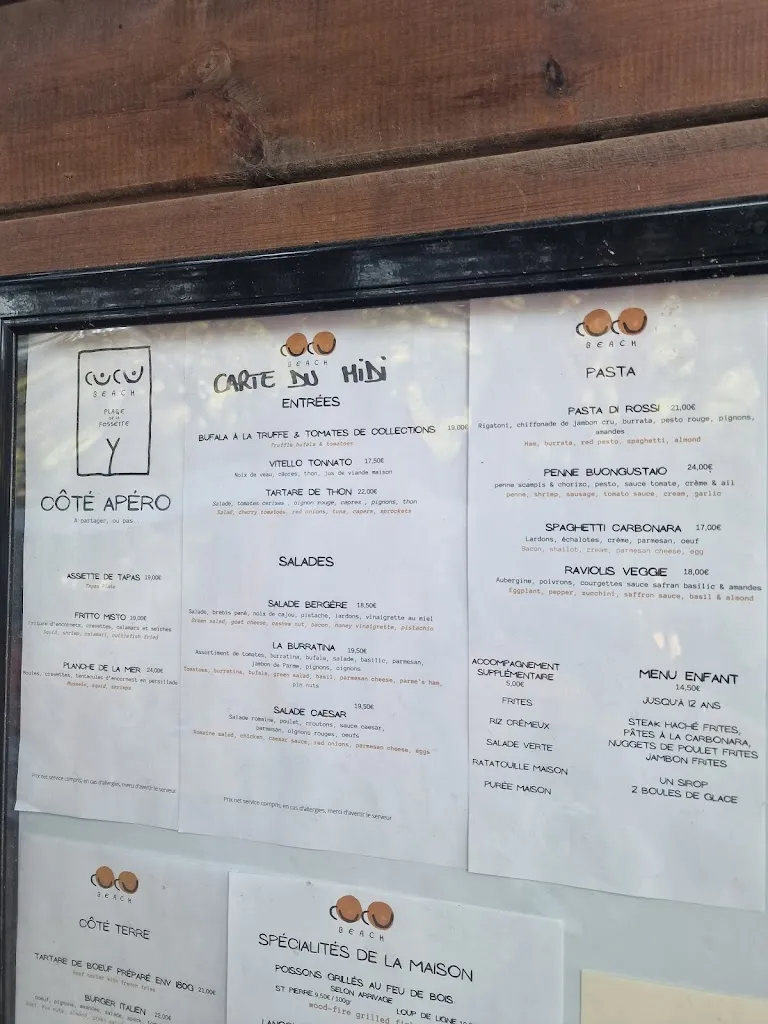 CUCU
BEACH
PLAGE
DE LA
FOSSETTE
CÔTÉ APÉRO
A partager, ou pas
ASSETTE DE TAPAS 19,00€
Tapas Plate
FRITTO MISTO 19,00€
Friture d'encornets, crevettes, calamars et seiches
Squid, shrimp, calamari, cuttlefish fried
PLANCHE DE LA MER 24,00€
Moules, crevettes, tentacules d'encornest en persillade
Mussels, squid, shrimps
Prix net service compris, en cas d'allergies, merci d'avertir le serveur
CUCU
BEACH
CARTE DU MIDI
ENTRÉES
BUFALA À LA TRUFFE & TOMATES DE COLLECTIONS 19,00€
Truffle bufala & tomatoes
VITELLO TONNATO 17,50€
Noix de veau, câpres, thon, jus de viande maison
TARTARE DE THON 22,00€
Salade, tomates cerises , oignon rouge, capres , pignons, thon
Salad, cherry tomatoes, red onions, tuna, capers, sprockets
SALADES
SALADE BERGÈRE 18,50€
Salade, brebis pané, noix de cajou, pistache, jardons, vinaigrette au miel
Green salad, goat cheese, cashew nut, bacon, honey vinaigrette, pistachio
LA BURRATINA 19,50€
Assortiment de tomates, burratina, bufala, salade, basilic, parmesan,
jambon de Parme, pignons, oignons
Tomatoes, burratina, bufala, green salad, basil, parmesan cheese, parme's ham,
pin nuts
19,50€
SALADE CAESAR
Salade romaine, poulet, croutons, sauce caesar,
parmesan, oignons rouges, oeufs
Romaine salad, chicken, caesar sauce, red onions, parmesan cheese, eggs
Prix net service compris, en cas d'allergies, merci d'avertir le serveur
CUCU
BEACH
PASTA
PASTA DI ROSSI 21,00€
Rigatoni, chiffonade de jambon cru, burrata, pesto rouge, pignons,
amandes
Ham, burrata, red pesto, spaghetti, almond
PENNE BUONGUSTAIO 24,00€
penne scampis & chorizo, pesto, sauce tomate, crème & ail
penne, shrimp, sausage, tomato sauce, cream, garlic
SPAGHETTI CARBONARA 17,00€
Lardons, échalotes, crème, parmesan, oeuf
Bacon, shallot, cream, parmesan cheese, egg
RAVIOLIS VEGGIE 18,00€
Aubergine, poivrons, courgettes sauce safran basilic & amandes
Eggplant, pepper, zucchini, saffron sauce, basil & almond
ACCOMPAGNEMENT
SUPPLÉMENTAIRE
5,00€
FRITES
RIZ CRÉMEUX
SALADE VERTE
RATATOUILLE MAISON
PURÉE MAISON
MENU ENFANT
14,50€
JUSQU'À 12 ANS
STEAK HACHÉ FRITES,
PÂTES À LA CARBONARA,
NUGGETS DE POULET FRITES
JAMBON FRITES
UN SIROP
2 BOULES DE GLACE
CUCU
BEACH
CÔTÉ TERRE
TARTARE DE BOEUF PRÉPARÉ ENV 180G 21,00€
Beef tartar with french fries
BURGER ITALIEN 22,00€
CUCU
BEACH
SPÉCIALITÉS DE LA MAISON
POISSONS GRILLÉS AU FEU DE BOIS
SELON ARRIVAGE
ST PIERRE 9,50€ / 100gr
LOUP DE LIGNE
wood-fire grilled